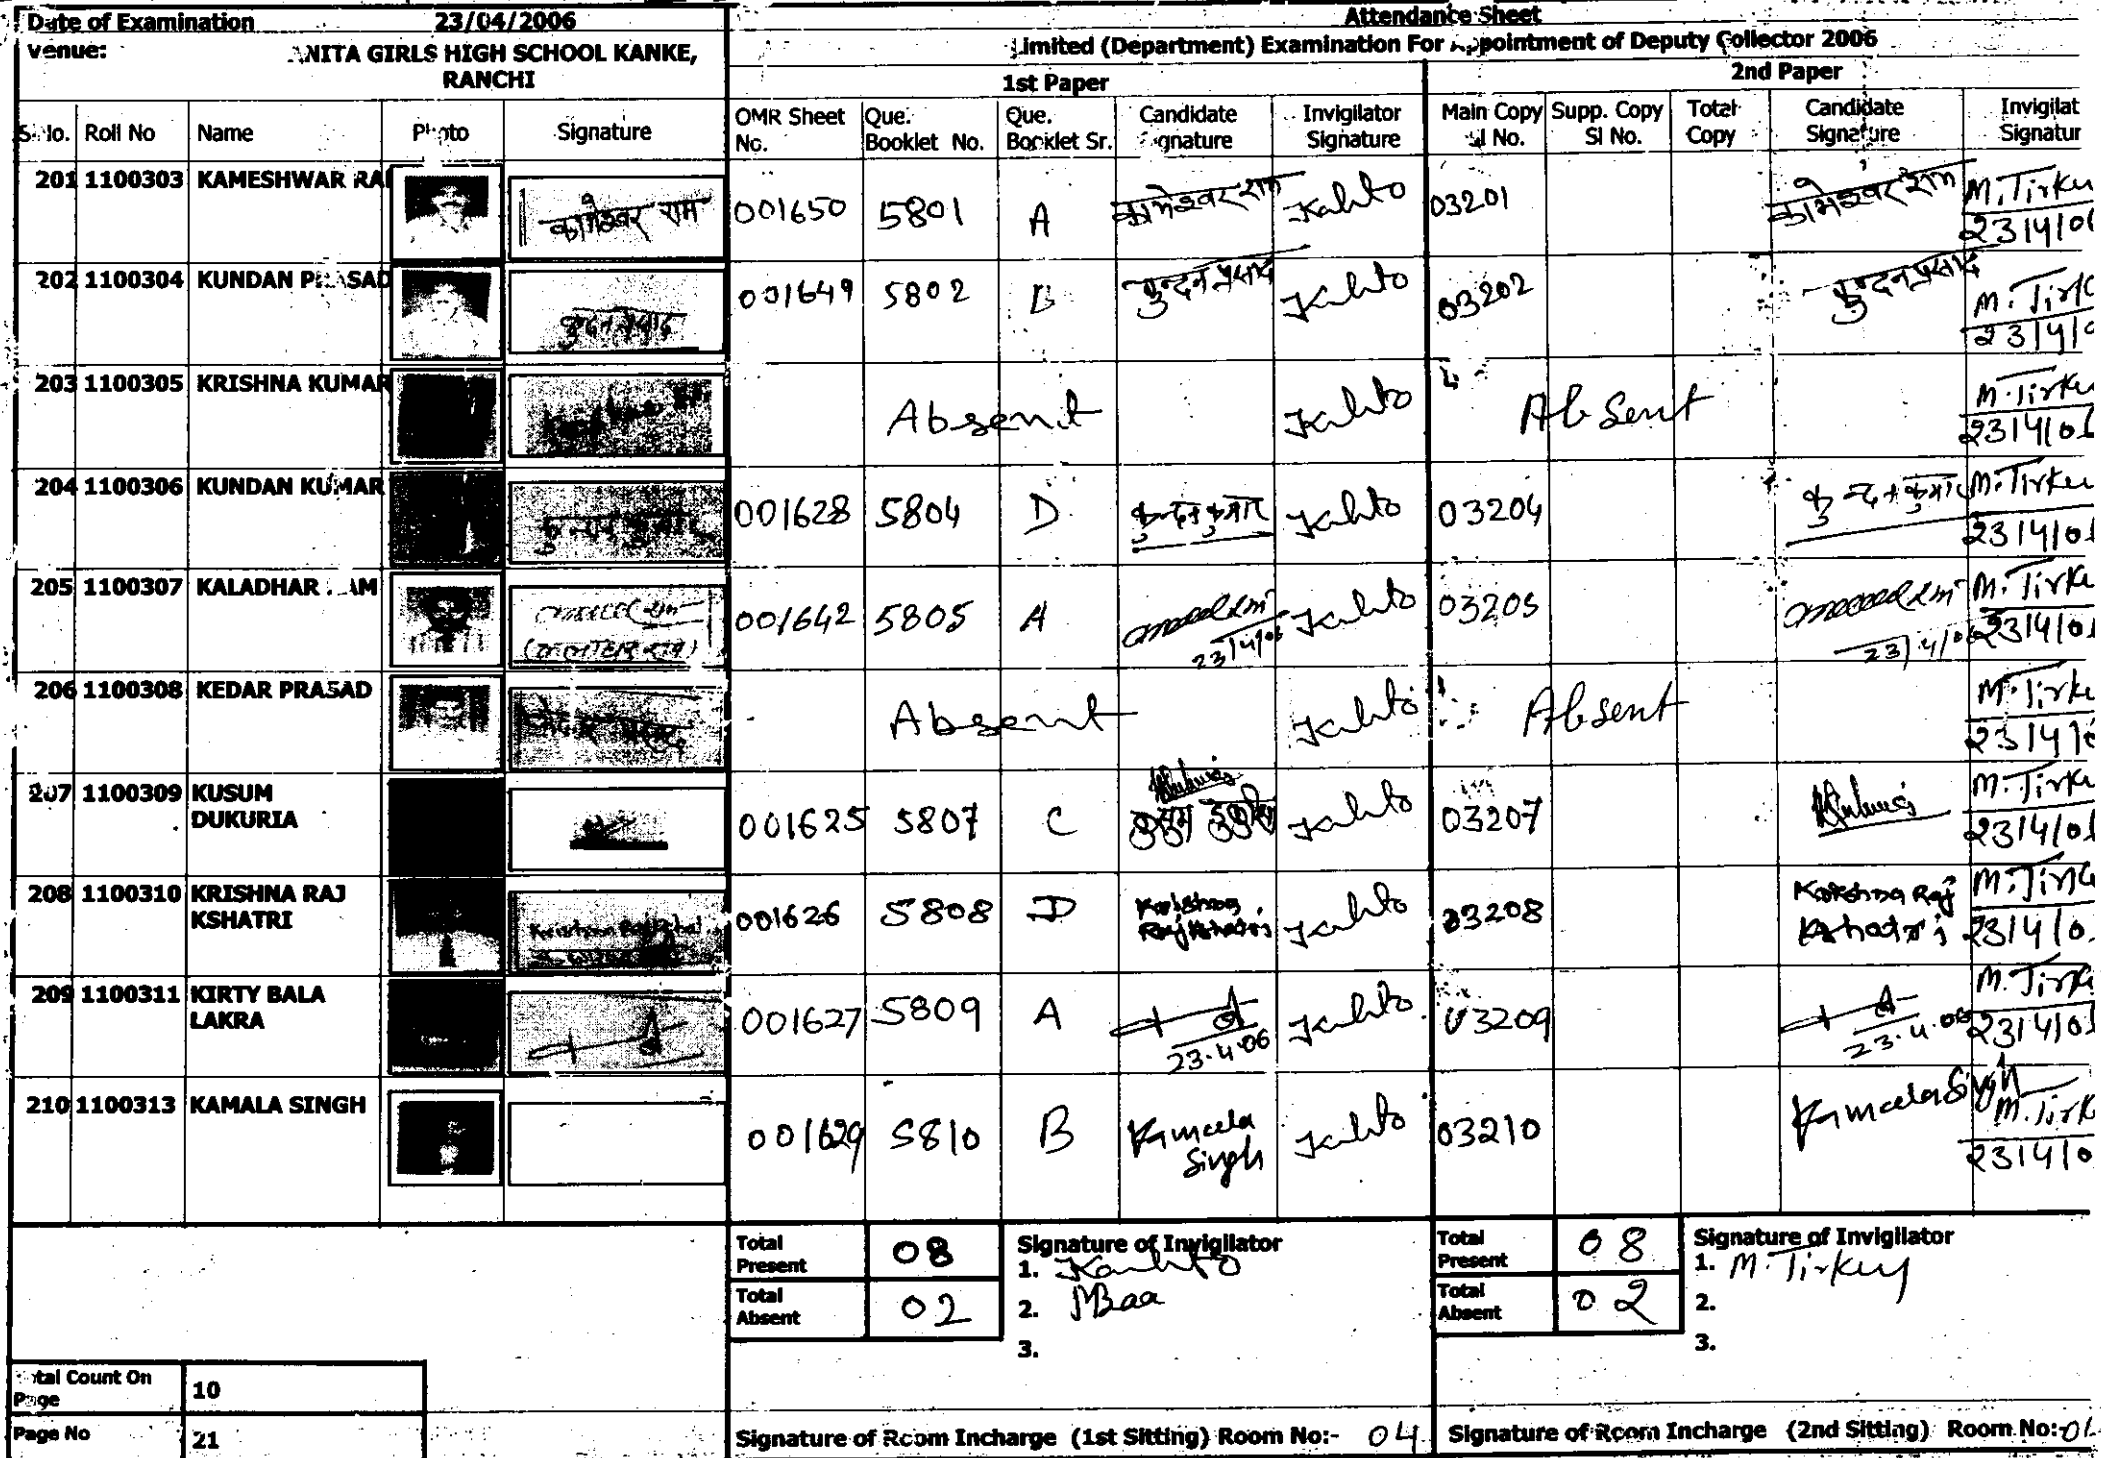 Date of Examination 23/04/2006
Venue: NITA GIRLS HIGH SCHOOL KANKE,
RANCHI
Attendance Sheet
Limited (Department) Examination For Appointment of Deputy Collector 2006
1st Paper 2nd Paper
S.No. Roll No Name Photo Signature OMR Sheet No. Que. Booklet No. Que. Booklet Sr. Candidate Signature Invigilator Signature Main Copy Sl No. Supp. Copy Sl No. Total Copy Candidate Signature Invigilat Signatur
201 1100303 KAMESHWAR RA कामेश्वर राम 001650 5801 A कामेश्वर राम Kahto 03201 कामेश्वर राम M. Tirke
23/4/0
202 1100304 KUNDAN PRASAD कुन्दन प्रसाद 001649 5802 B कुन्दन प्रसाद Kahto 03202 कुन्दन प्रसाद M. Tirk
23/4/0
203 1100305 KRISHNA KUMAR Absent Kahto Absent M. Tirke
23/4/0
204 1100306 KUNDAN KUMAR कुन्दन कुमार 001628 5804 D कुन्दन कुमार Kahto 03204 कुन्दन कुमार M. Tirke
23/4/0
205 1100307 KALADHAR RAM 001642 5805 A 23/4/06 Kahto 03205 23/4/06 M. Tirke
23/4/0
206 1100308 KEDAR PRASAD केदार प्रसाद Absent Kahto Absent M. Tirke
23/4/0
207 1100309 KUSUM
DUKURIA 001625 5807 C Kahto 03207 M. Tirke
23/4/0
208 1100310 KRISHNA RAJ
KSHATRI 001626 5808 D Krishna Raj Kshatri Kahto 03208 Krishna Raj Kshatri M. Tirk
23/4/0
209 1100311 KIRTY BALA
LAKRA 001627 5809 A 23.4.06 Kahto 03209 23.4.06 M. Tirke
23/4/0
210 1100313 KAMALA SINGH 001629 5810 B Kamala Singh Kahto 03210 Kamala Singh M. Tirk
23/4/0
Total Present 08 Signature of Invigilator Total Present 08 Signature of Invigilator
1. Kahto 1. M. Tirkey
Total Absent 02 2. MBaa Total Absent 02 2.
3. 3.
Total Count On Page 10
Page No 21
Signature of Room Incharge (1st Sitting) Room No:- 04 Signature of Room Incharge (2nd Sitting) Room No:-